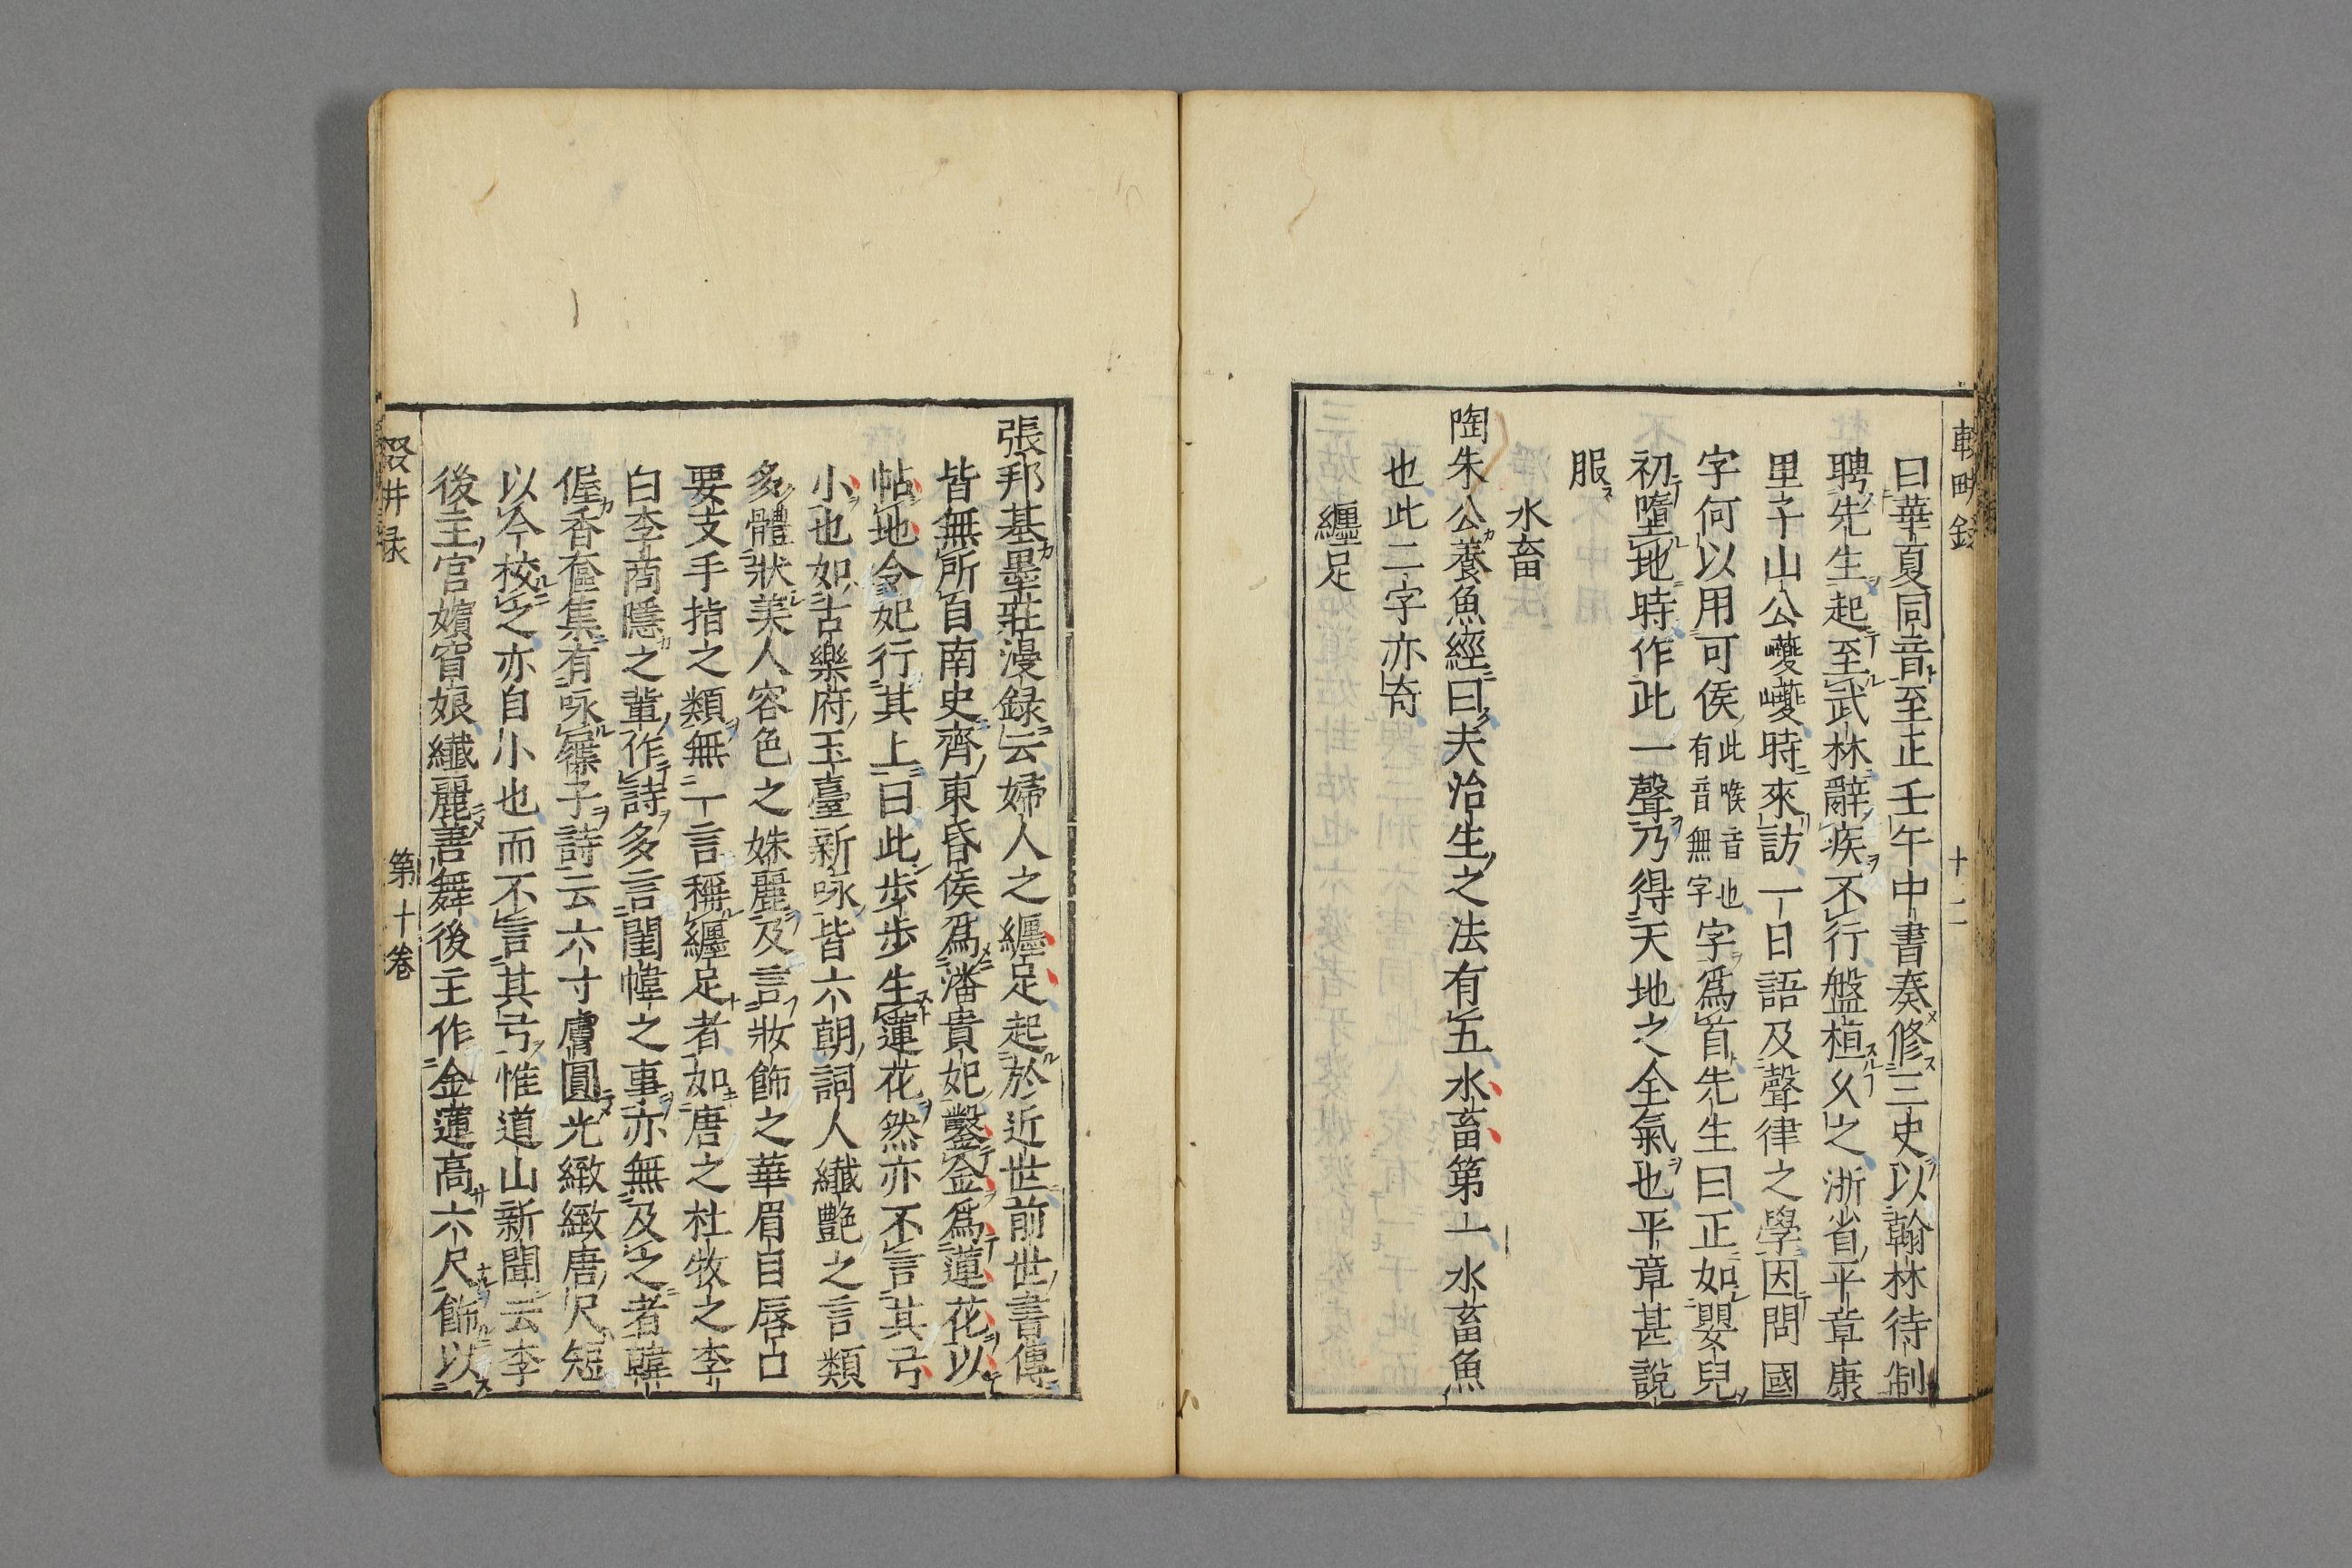 曰華夏同音至正壬午中書奏修三史以翰林待制
聘先生起至武林辭疾不行盤桓久之浙省平章康
里子山公巙巙時來訪一日語及聲律之學因問國
字何以用可侯此喉音也有音無字字爲首先生曰正如嬰兒
初墮地時作此一聲乃得天地之全氣也平章甚說
服
水畜
陶朱公養魚經曰夫治生之法有五水畜第一水畜魚
也此二字亦奇
纏足
張邦基墨莊漫録云婦人之纏足起於近世前世書傳
皆無所自南史齊東昏侯爲潘貴妃鑿金爲蓮花以
帖地令妃行其上曰此步步生蓮花然亦不言其弓
小也如古樂府玉臺新咏皆六朝詞人纎艷之言類
多體狀美人容色之姝麗及言妝飾之華眉目唇口
要支手指之類無一言稱纏足者如唐之杜牧之李
白李商隱之輩作詩多言閨幃之事亦無及之者韓
偓香奩集有咏屧子詩云六寸膚圓光緻緻唐尺短
以今校之亦自小也而不言其弓惟道山新聞云李
後主宮嬪窅娘纎麗善舞後主作金蓮高六尺飾以
第十卷
十二